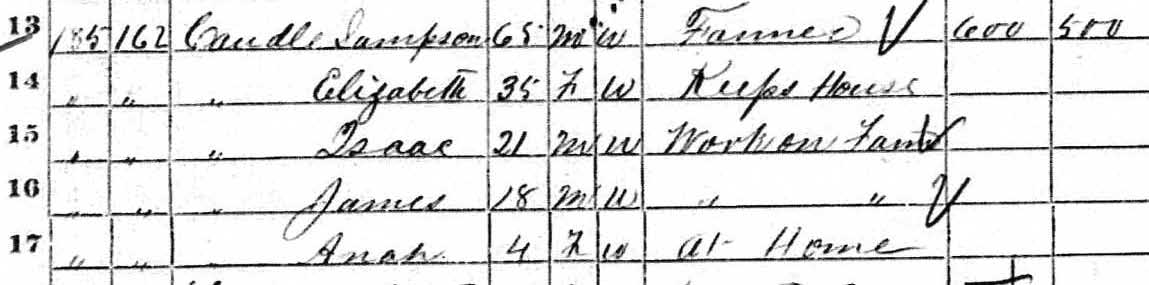 13 185 162 Caudle Sampson 65 M W Farmer 600 500
14 " " " Elizabeth 35 F W Keeps House
15 " " " Isaac 21 M W Work on Farm
16 " " " James 18 M W " "
17 " " " Anah 4 F W At Home